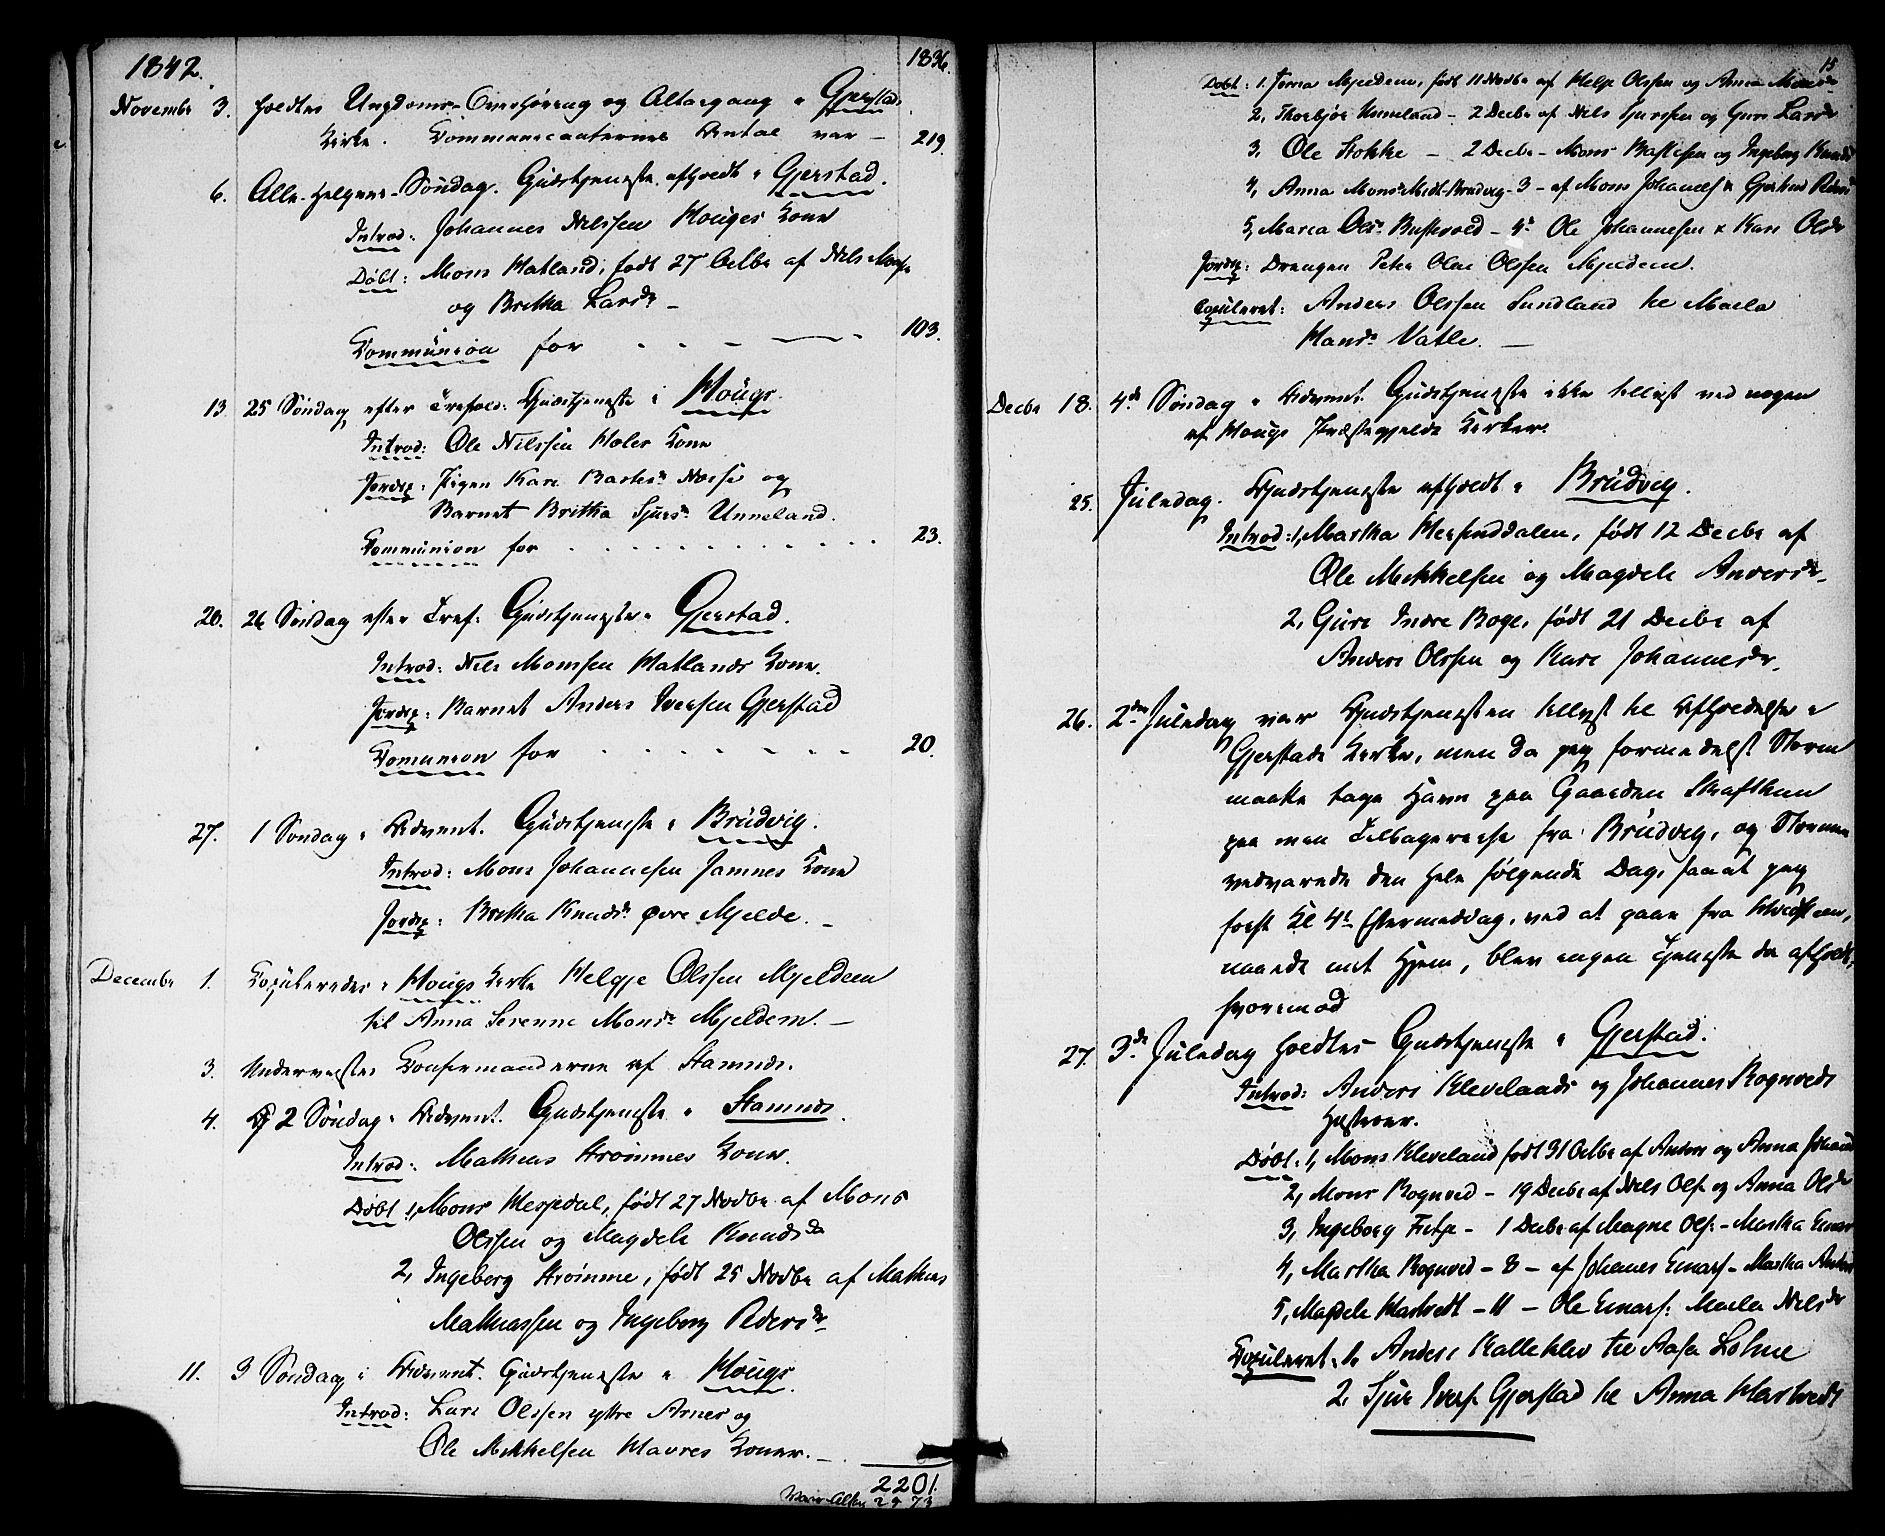 1842. 1836.
Novembr 3. holdtes Ungdoms-Overhøring og Altergang i Gjerstads
Kirke. Communicanternes Antal var — 219.
6. Alle-Helgens-Søndag. Gudstjeneste afholdt i Gjerstad.
Introd: Johannes Nilssen Houges Kone
Døbt: Mons Hatland, født 27 Octbr af Nils Monss
og Britha Larsdr —
Communion for - - - — - 103.
13 25 Søndag efter Trefold: Gudstjeneste i Hougs.
Introd: Ole Nilssen Holes Kone
Jordsp: Pigen Kari Bastesdr Næsse og
Barnet Britha Sjursdr Unneland.
Communion for . . . . . . . . . . . 23.
20. 26 Søndag efter Tref: Gudstjeneste i Gjerstad.
Introd: Nils Monssen Hatlands Kone.
Jordsp: Barnet Anders Iversen Gjerstad
Comunion for - - - - - - - 20.
27. 1 Søndag i Advent. Gudstjeneste i Brudvig.
Introd: Mons Johannesen Jamnes Kone
Jordsp: Britha Knudsdr øvre Mjelde. —
December 1. Copuleredes i Hougs Kirke Helgje Olssen Mjeldem
til Anna Serenne Monsdr Mjeldem. —
3. Underviistes Confirmanderne af Stamnds.
4. 2 Søndag i Advent. Gudstjeneste i Stamnds.
Introd: Mathias Strømmes Kone.
Døbt 1, Mons Hesjedal, født 27 Novbr af Mons
Olssen og Magdeli Knudsdr
2, Ingeborg Strømme, født 25 Novbr af Mathias
Mathiassen og Ingeborg Pedersdr
11. 3 Søndag i Advent. Gudstjeneste i Hougs.
Introd: Lars Olssen yttre Arnes og
Ole Mikkelsen Havres Koner. —
2201.
2973
15
Døbt: 1. Jensa Mjeldem, født 11 Novbr af Helje Olssen og Anna Monsdr
2, Thorbjør Unneland — 2 Decbr af Nils Sjurssen og Guri Larsdr
3. Ole Stokke — 2 Decbr — Mons Bastesen og Ingeborg Knudsd
4, Anna Monsdr Midt-Brudvig — 3 — af Mons Johannes & Gjertrud
5, Maria Olsdr Buskvold — 4de Ole Johannesen & Kari Olsdr
Jordsp: Drengen Peter Olai Olssen Mjeldem.
Copuleret: Anders Olssen Sundland til Marla
Hansdr Vatle. —
Decbr 18. 4de Søndag i Advent. Gudstjeneste ikke tillyst ved nogen
af Hougs Præstegjelds Kirker.
25. Juledag. Gudstjeneste afholdt i Brudvig.
Introd: 1, Martha Herfinddalen, født 12 Decbr af
Ole Mikkelsen og Magdeli Andersdr,
2, Guri Indre Boge, født 21 Decbr af
Anders Olssen og Kari Johannesdr,
26. 2den Juledag var Gudstjenesten tillyst til Afholdelse i
Gjerstads Kirke, men da jeg formedelst Storm
maatte tage Havn paa Gaarden Skaftun
paa min Tilbagereise fra Brudvig, og Stormen
vedvarede den hele følgende Dag, saaat jeg
først Kl 4re Eftermiddag, ved at gaae fra
naaede mit Hjem, blev ingen Tjeneste da afholdt,
hvorimod
27. 3de Juledag holdtes Gudstjeneste i Gjerstad.
Introd: Anders Klevelands og Johannes Rognveds
Hustruer.
Døbt: 1, Mons Kleveland født 31 Octbr af Anders og Anna Johannsd
2, Mons Rognved — 19 Decbr af Nils Ols. og Anna Olsdr
3, Ingeborg — 1 Decbr af Magne Ols. — Martha Einars
4, Martha Rognved — 8 — af Johanes Einars — Martha Anders
5, Magdele Hartvedt — 11 — Ole Einars: Marla Nilsdr
Copuleret 1. Anders Kallekleiv til Aasa Lohne
2. Sjur Ivers. Gjerstad til Anna Hartvedt